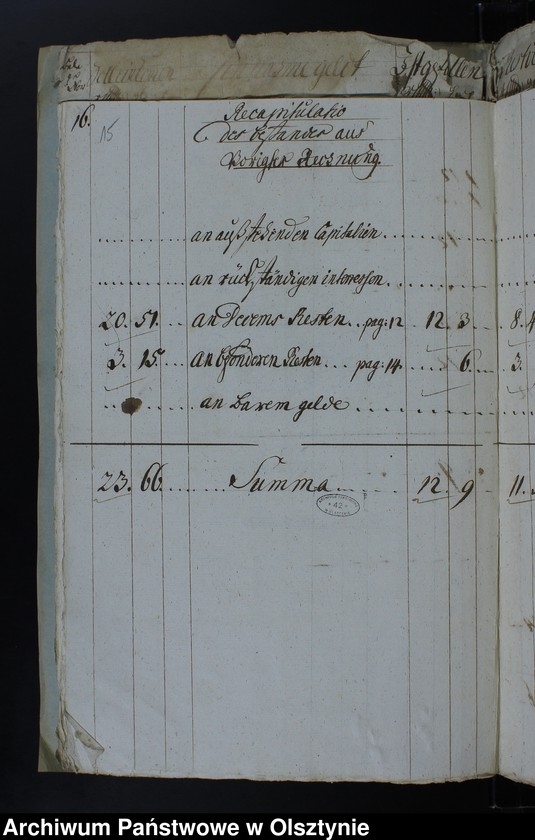 16.
15
Recapitulatio
des bestandes aus
Voriger Rechnung.
an außstehenden Capitalien
an rückständigen interessen
20. 51. an Decems Resten. pag: 12 12. 3. 8. 4
3. 15. an besonderen Resten pag: 14. 6. 3.
an barem gelde
23. 66. Summa 12. 9 11.
42
Archiwum Państwowe w Olsztynie